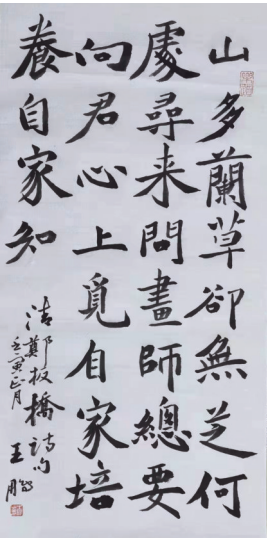 山多蘭草卻無芝何
處尋来問畫師總要
向君心上覓自家培
養自家知
清鄭板橋詩句
壬寅正月
王鵬